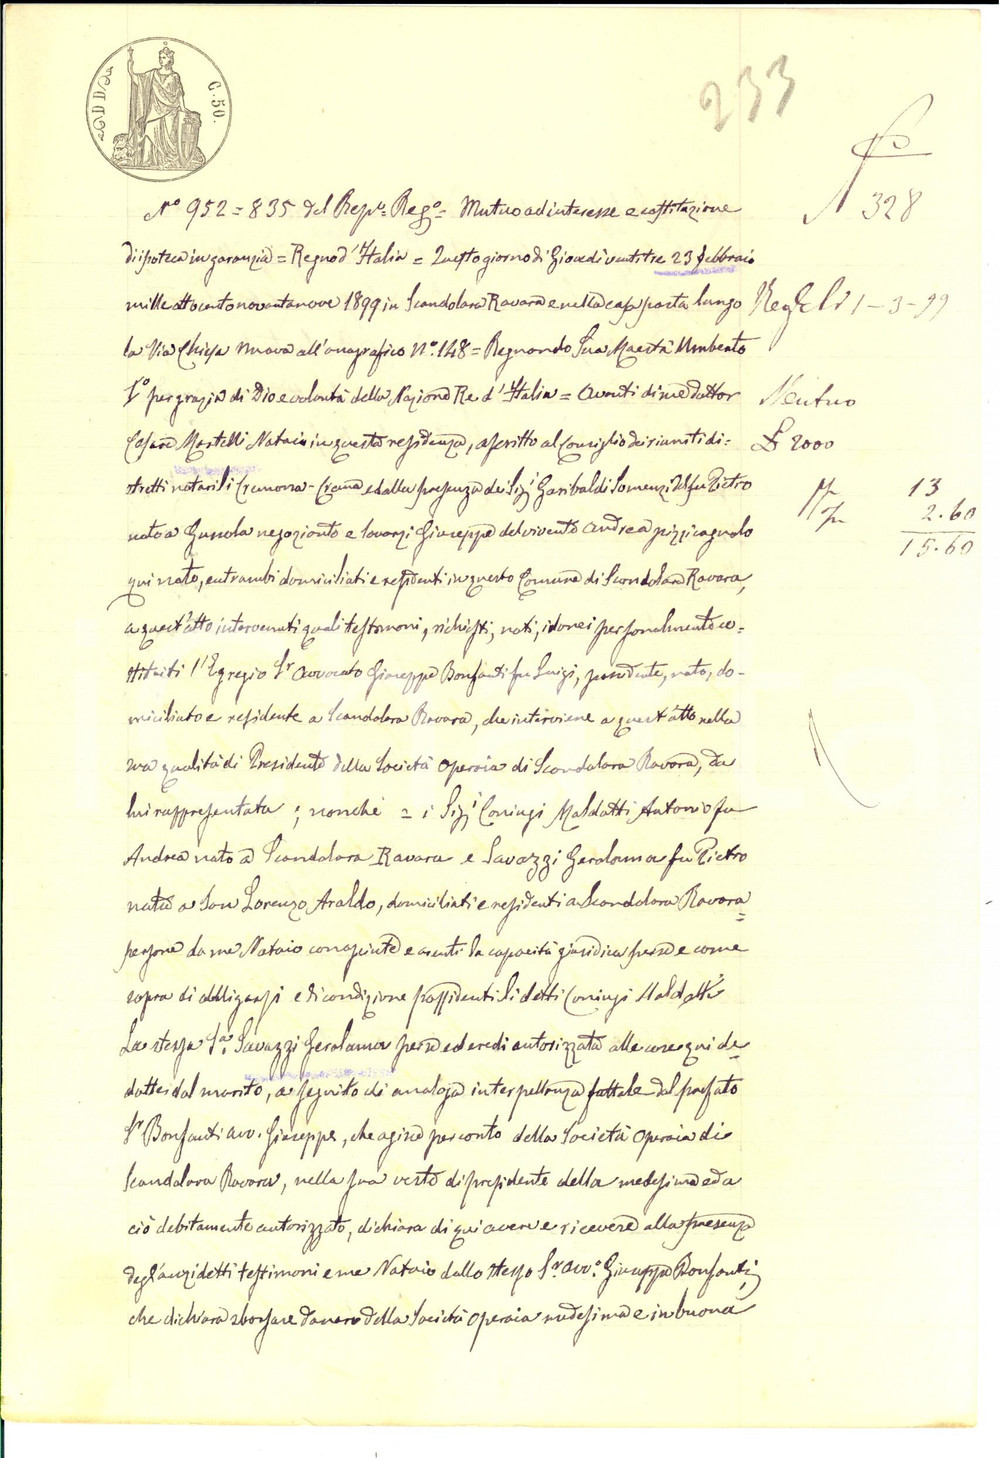 C. 50.
233
N° 952 = 835 del Rep.° Reg.° = Mutuo ad interesse e costituzione
di ipoteca in garanzia = Regno d'Italia = Questo giorno di Giovedi ventitre 23 febbraio
mille ottocento novantanove 1899 in Scandolara Ravara e nella casa posta lungo
la Via Chiesa nuova all'anagrafico N.° 148 = Regnando Sua Maestà Umberto
I° per grazia di Dio e volontà della Nazione Re d'Italia = Avanti di me dottor
Cesare Martelli Notaio in questa residenza, ascritto al Consiglio dei riuniti di=
stretti notarili Cremona-Crema e dalla presenza dei Sig.i Garibaldi Somenzi del fu Pietro
nato a Gussola negoziante e Savazzi Giuseppe del vivente Andrea pizzicagnolo
qui nato, entrambi domiciliati e residenti in questo Comune di Scandolara Ravara,
a quest'atto intervenuti quali testimoni, richiesti, noti, idonei personalmente co=
stituiti l'Egregio Sr Avvocato Giuseppe Bonfanti fu Luigi, possidente, nato, do-
miciliato e residente a Scandolara Ravara, che interviene a quest'atto nella
sua qualità di Presidente della Società Operaia di Scandolara Ravara, da
lui rappresentata; nonché = i Sig.i Coniugi Maldotti Antonio fu
Andrea nato a Scandolara Ravara e Savazzi Gerolama fu Pietro
nata a San Lorenzo Aroldo, domiciliati e residenti a Scandolara Ravara =
persone da me Notaio conosciute e aventi la capacità giuridica per sé e come
sopra di obbligarsi e di condizione possidenti li detti Coniugi Maldotti
La stessa S.a Savazzi Gerolama per sé ed eredi autorizzata alle cose qui de=
dotte dal marito, a seguito di analoga interpellanza fattale dal prefato
Sr Bonfanti avv. Giuseppe, che agisce per conto della Società Operaia di
Scandolara Ravara, nella sua veste di presidente della medesima ed a
ciò debitamente autorizzato, dichiara di qui avere e ricevere alla presenza
degl'anzidetti testimoni e me Notaio dallo stesso Sr avv.° Giuseppe Bonfanti,
che dichiara sborsare danaro della Società Operaia medesima e in buona
N 328
1-3-99
Mutuo
£ 2000
13
2.60
15.60